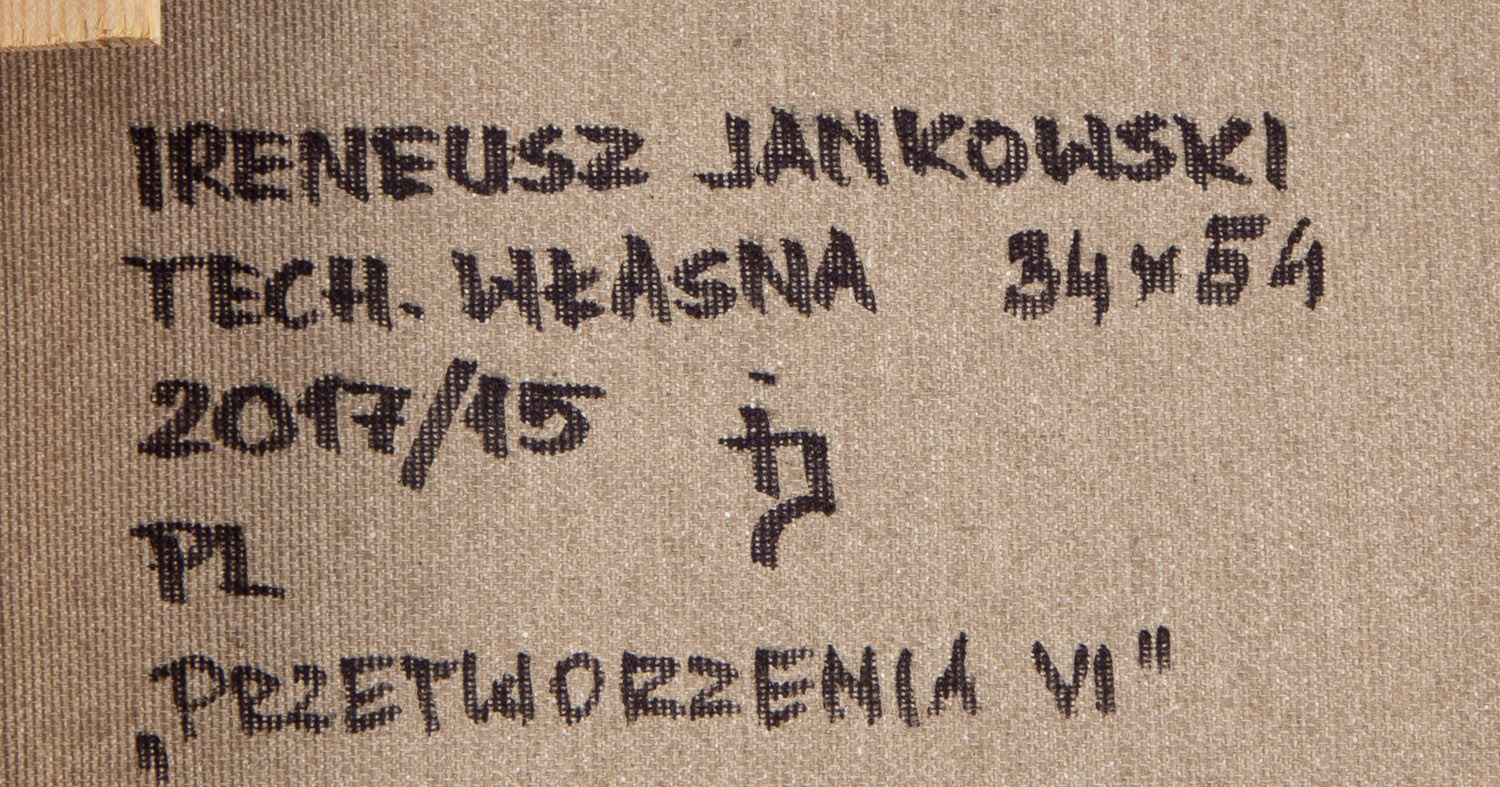 IRENEUSZ JANKOWSKI
TECH. WŁASNA 34x54
2017/15
PL
„PRZETWORZENIA VI"